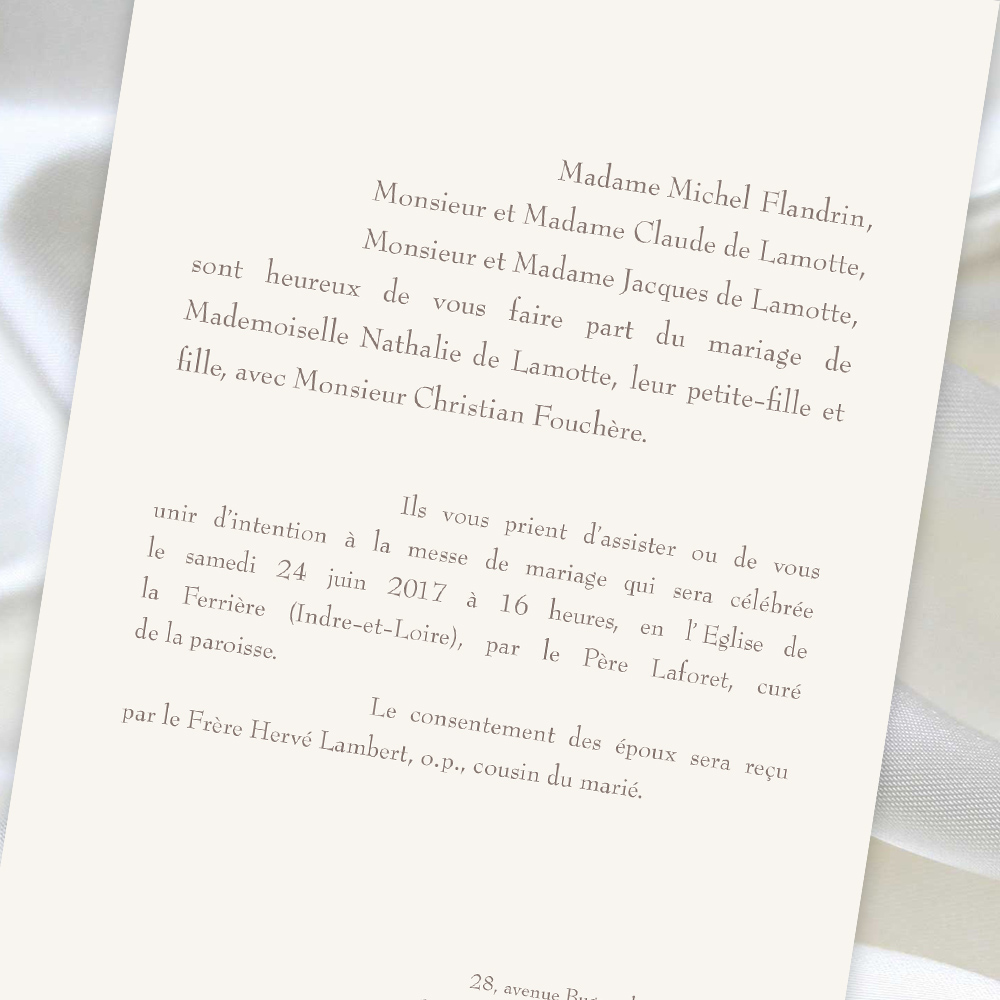 Madame Michel Flandrin,
Monsieur et Madame Claude de Lamotte,
Monsieur et Madame Jacques de Lamotte,
sont heureux de vous faire part du mariage de
Mademoiselle Nathalie de Lamotte, leur petite-fille et
fille, avec Monsieur Christian Fouchère.
Ils vous prient d'assister ou de vous
unir d'intention à la messe de mariage qui sera célébrée
le samedi 24 juin 2017 à 16 heures, en l'Eglise de
la Ferrière (Indre-et-Loire), par le Père Laforet, curé
de la paroisse.
Le consentement des époux sera reçu
par le Frère Hervé Lambert, o.p., cousin du marié.
28, avenue